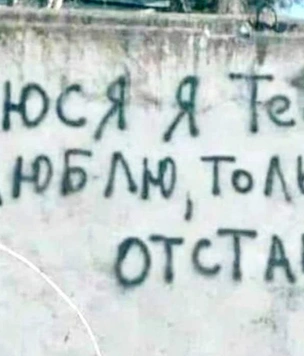 ЮСЯ Я Те
ЮБЛЮ, ТОЛЬ
ОТСТА